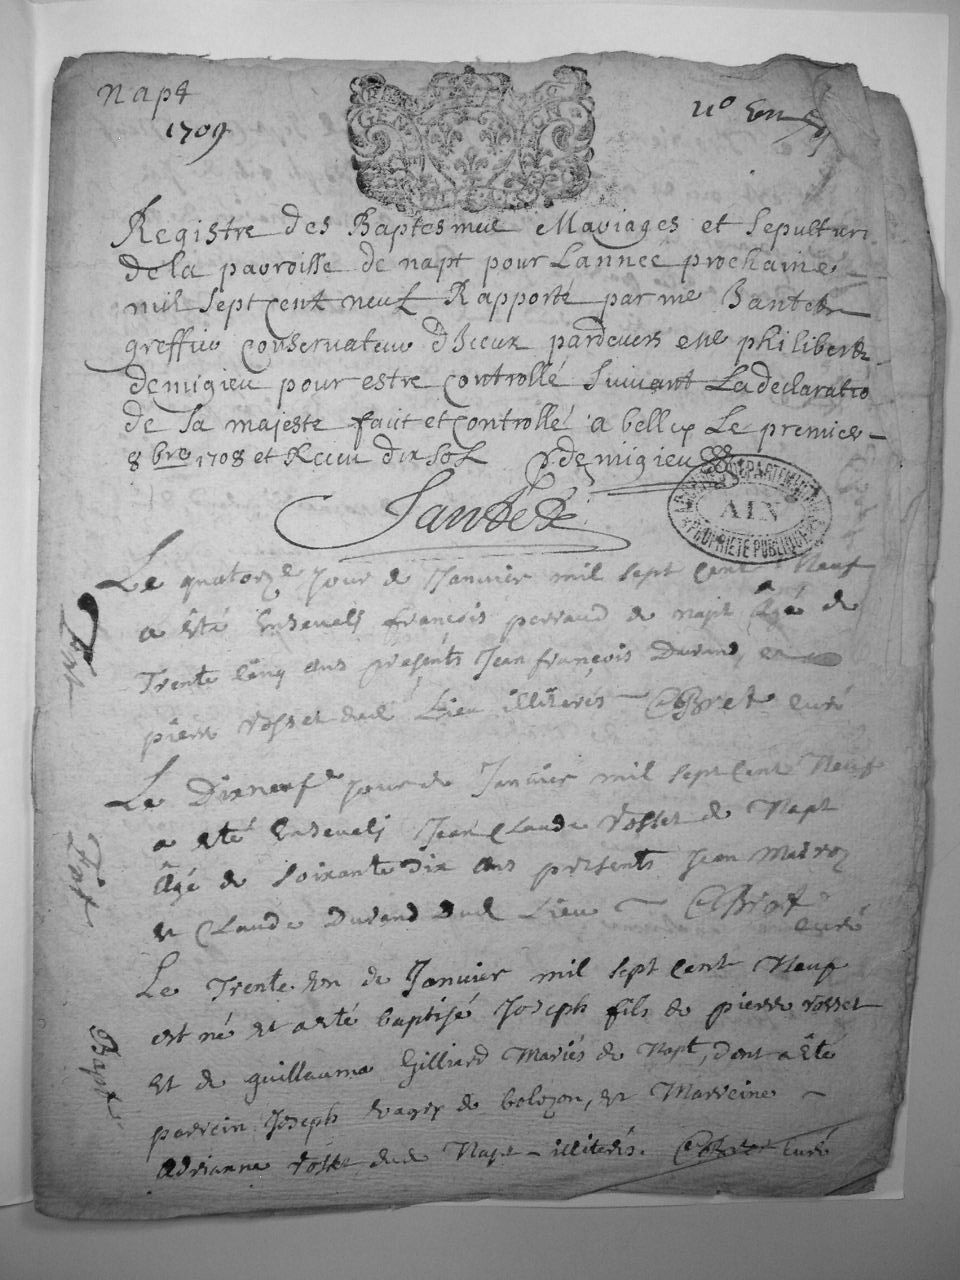 napt
1709
GEN
Registre des Baptesmes Mariages et sepultures
de la parroisse de napt pour Lannee prochaine
mil sept Cent neuf Rapporté par me
greffier Conservateur d'Iceux pardevers me philibert
demigieu pour estre Controllé suivant La declaratio
de sa majeste fait et Controllé a belley Le premier
8bre 1708 et Receu dix sols demigieu
ARCHIVES DEPARTEMENTALES
AIN
PROPRIETE PUBLIQUE
Le quatorze Jour de Janvier mil sept Cent Neuf
a esté Enseveli françois perraud de napt Agé de
Trente Cinq ans présents Jean françois Durand, et
pierre rosset dud Lieu illiterés CBret Curé
Le Dixneufe Jour de Janvier mil sept Cent Neuf
a esté Enseveli Jean Claude rosset de Napt
Âgé de soixante dix ans présents Jean
et Claude Durand dud Lieu CBret
Curé
Bapt
Le Trente un de Janvier mil sept Cent Neuf
est né et a esté baptisé Joseph fils de pierre rosset
et de guillauma Gilliard Mariés de Napt, dont a êté
parrein Joseph de bolozon, et Marreine
adrianna rosset dud Napt illiterés. CBret Curé